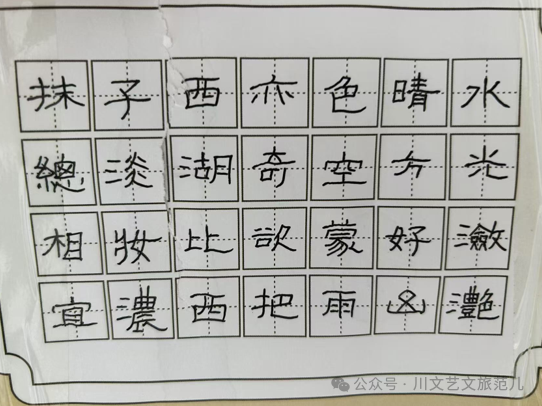 水光瀲灧
晴方好山
色空蒙雨
亦奇欲把
西湖比西
子淡妝濃
抹總相宜
公众号·川文艺文旅范儿